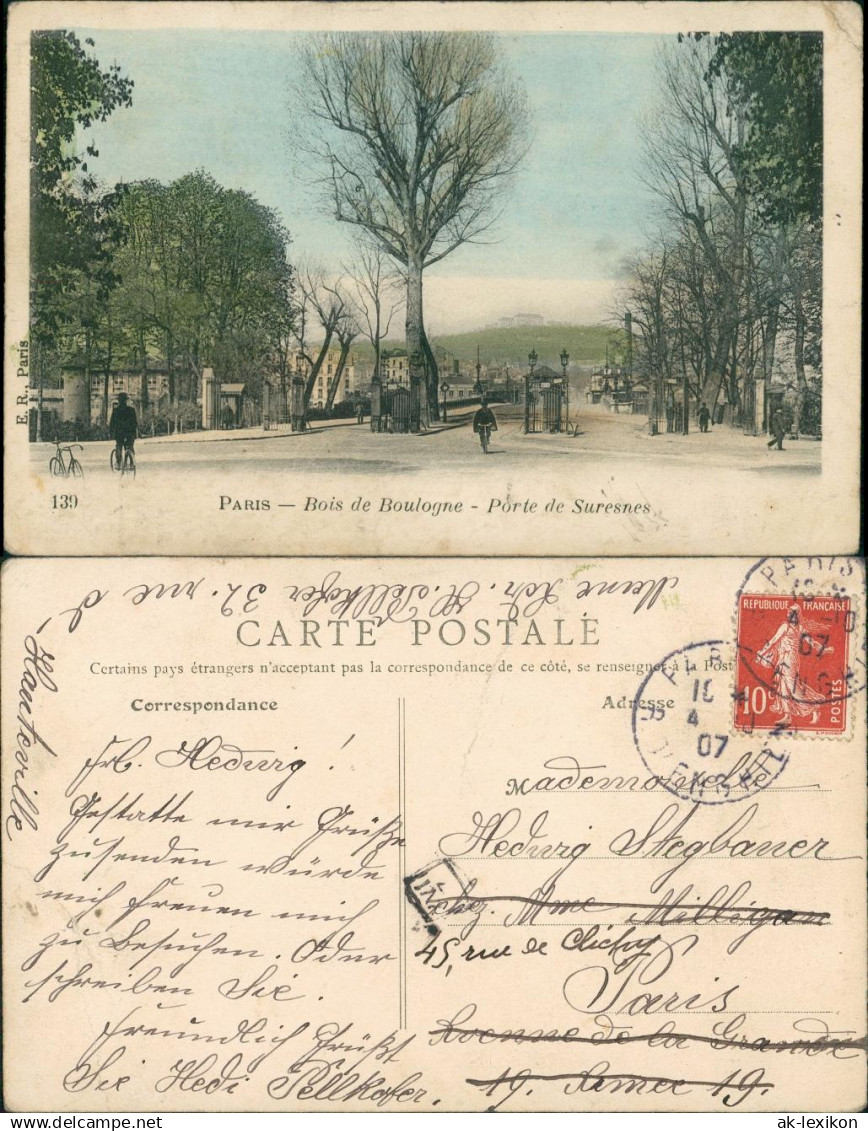 E. R., Paris
139
PARIS — Bois de Boulogne - Porte de Suresnes
Meine Adr. H. Pellkofer 32. rue d
Hauteville
CARTE POSTALE
Certains pays étrangers n'acceptant pas la correspondance de ce côté, se renseigner à la Post
Correspondance
Adresse
RÉPUBLIQUE FRANÇAISE
10
POSTES
PARIS
10
4 07
Frl. Hedwig!
Gestatte mir Grüße
zusenden würde
mich freuen mich
zu Besuchen. Oder
schreiben Sie.
Freundlich Grüßt
Sie Hedi Pellkofer.
Mademoiselle
Hedwig Stegbauer
chez. Mme Milligan
45, rue de Clichy
Paris
Avenue de la Grande
19. Armee 19.
ak-lexikon